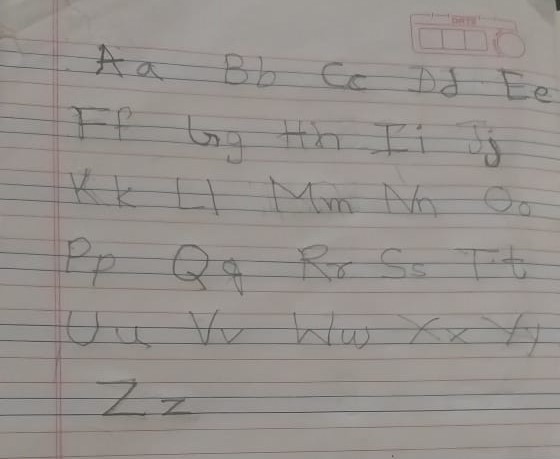 DATE
Aa Bb Cc Dd Ee
Ff Gg Hh Ii Jj
Kk Ll Mm Nn Oo
Pp Qq Rr Ss Tt
Uu Vv Ww Xx Yy
Zz